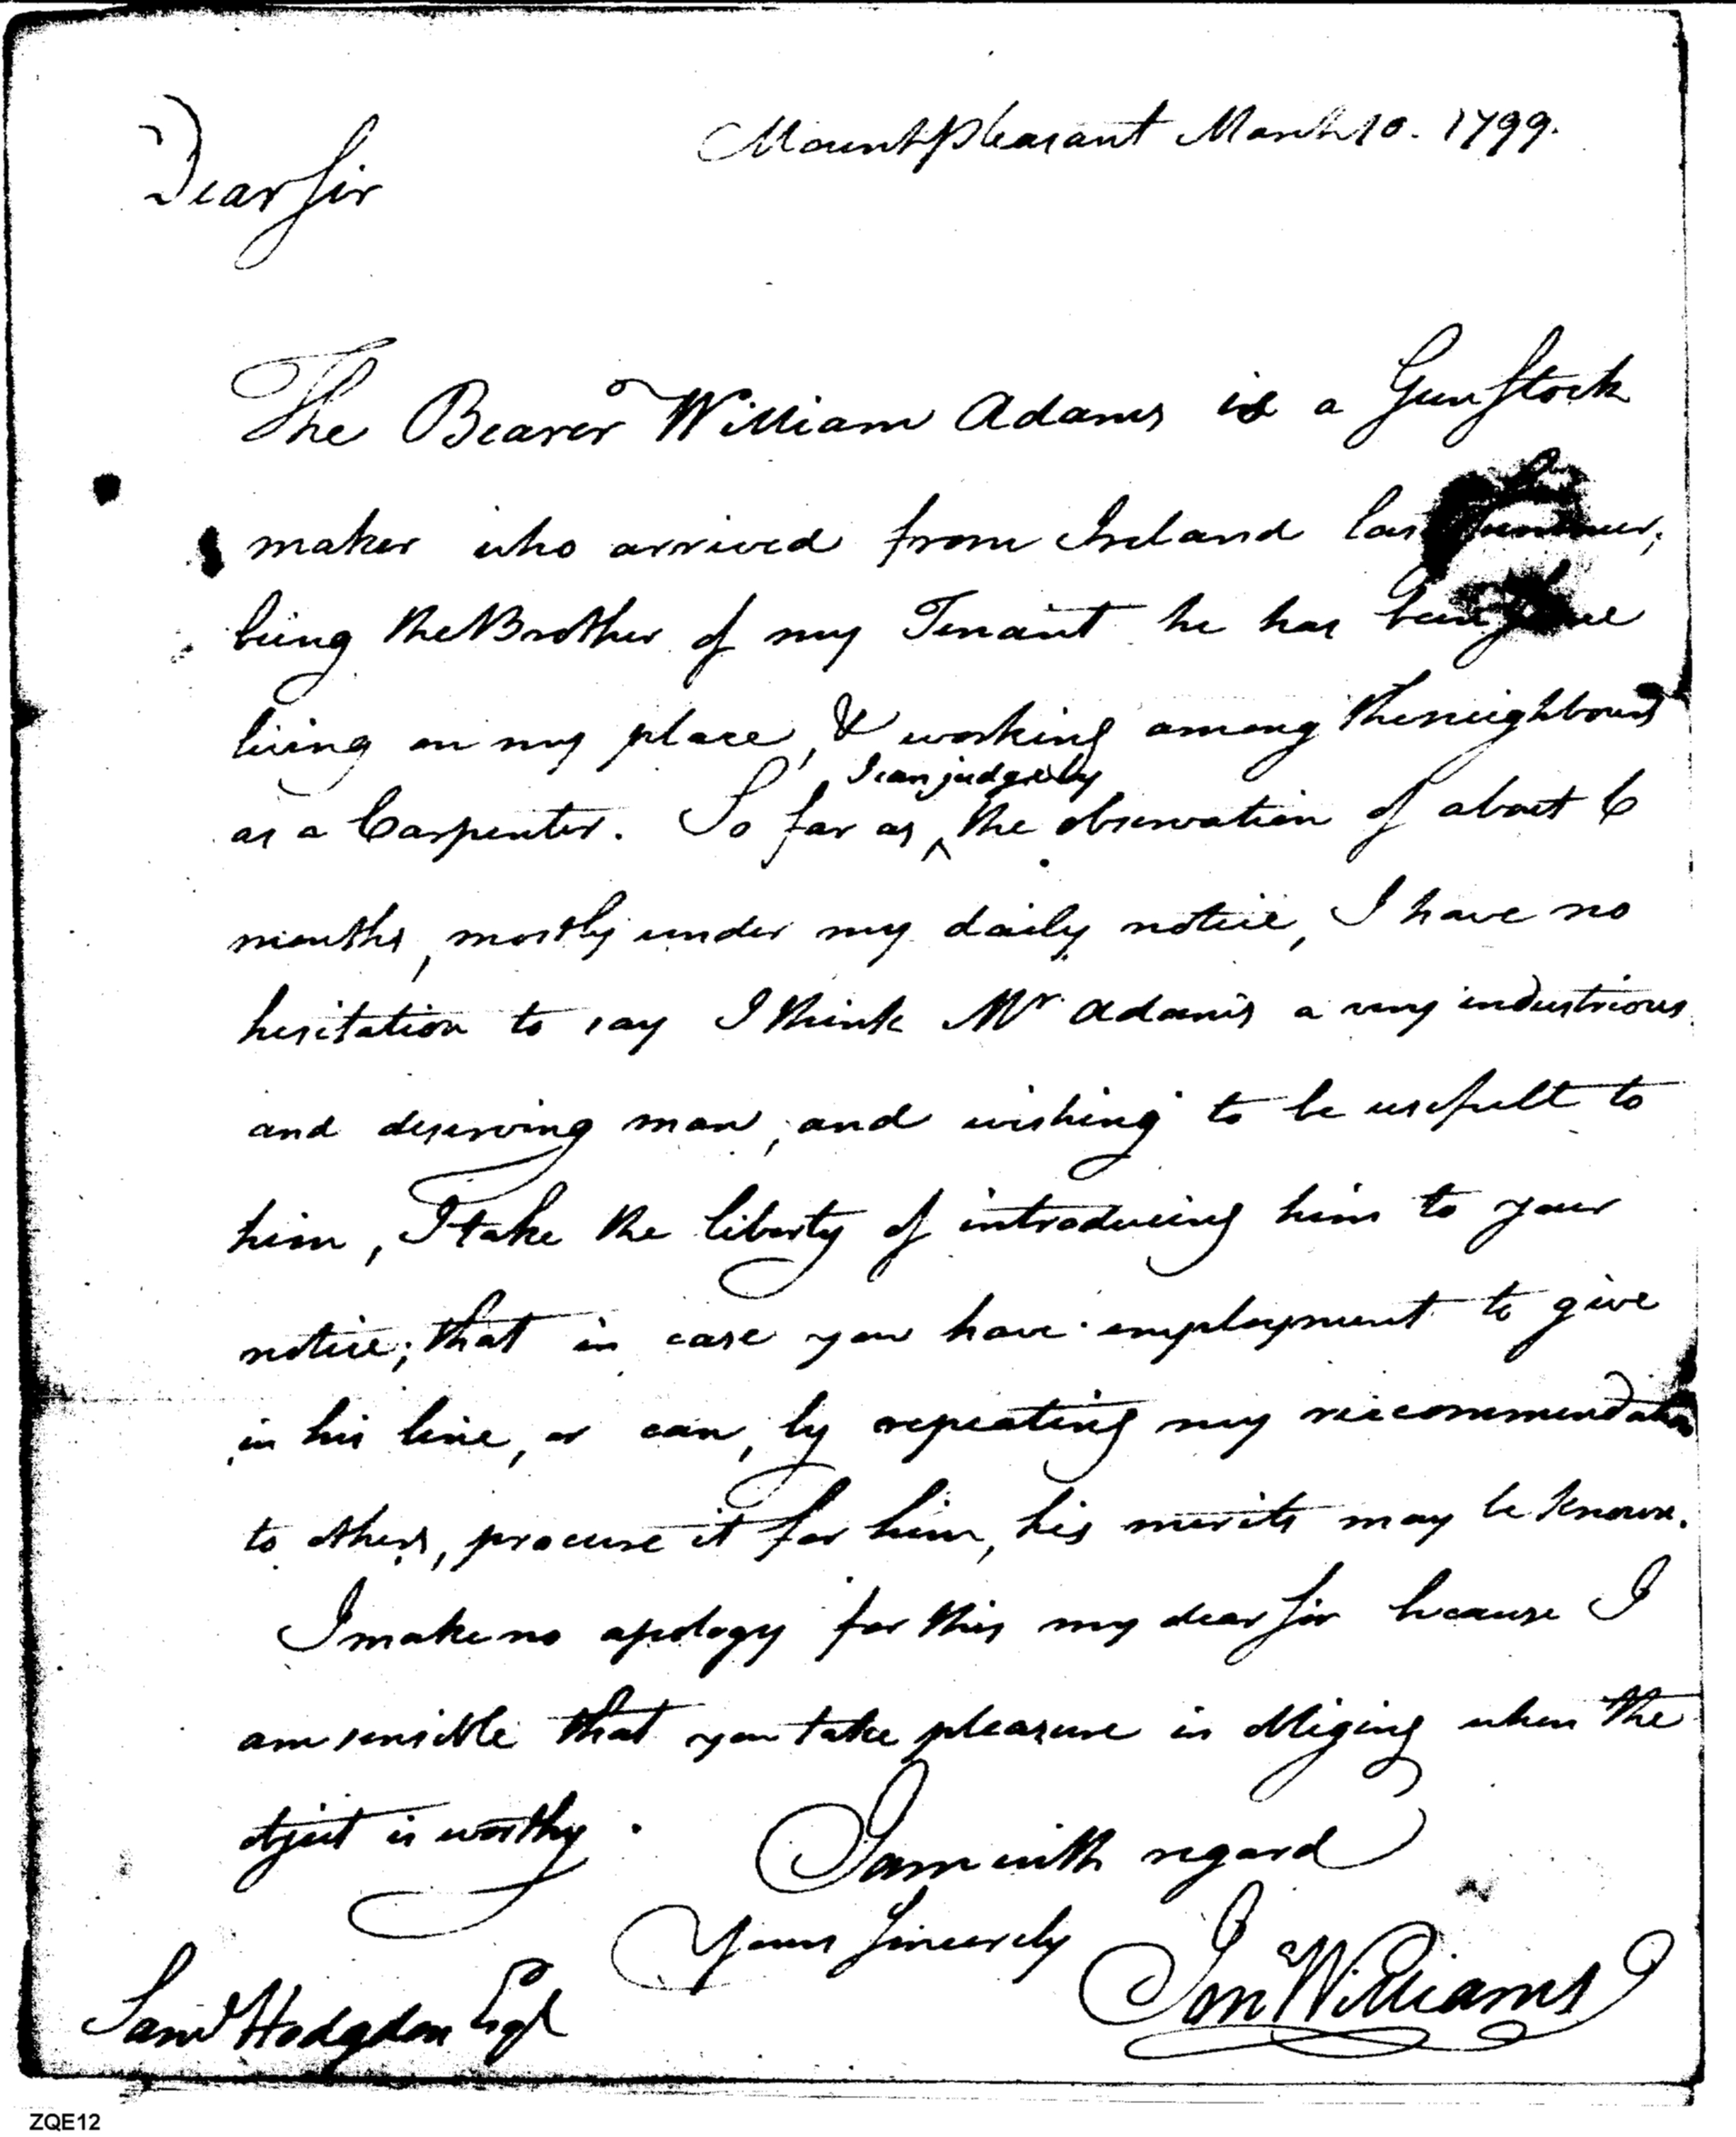 Mount pleasant March 10. 1799.
Dear Sir
The Bearer William Adams is a Gun Stock
maker who arrived from Ireland last Summer,
being the Brother of my Tenant he has been
living on my place, & working among the neighbours
I can judge by
as a Carpenter. So far as ^ the observation of about 6
months, mostly under my daily notice, I have no
hesitation to say I think Mr Adams a very industrious
and deserving man, and wishing to be usefull to
him, I take the liberty of introducing him to your
notice; that in case you have employment to give
in his line, or can, by repeating my reccommendation
to others, procure it for him, his merits may be known.
I make no apology for this my dear Sir because I
am sensible that you take pleasure in obliging when the
object is worthy.
I am with regard
Yours Sincerely
Jona Williams
Saml Hodgdon Esqr
ZQE12